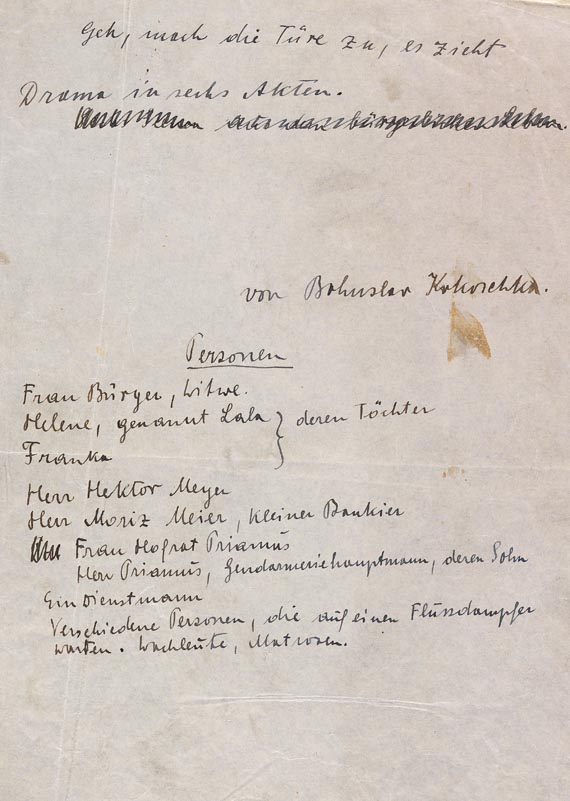 Geh, mach die Türe zu, es zieht
Drama in sechs Akten.
von Bohuslav Kokoschka.
Personen
Frau Bürger, Witwe.
Helene, genannt Lala } deren Töchter
Franka
Herr Hektor Meyer
Herr Moriz Meier, kleiner Bankier
Frau Hofrat Priamus
Herr Priamus, Gendarmeriehauptmann, deren Sohn
Ein Dienstmann
Verschiedene Personen, die auf einen Flussdampfer
warten. Wachleute, Matrosen.